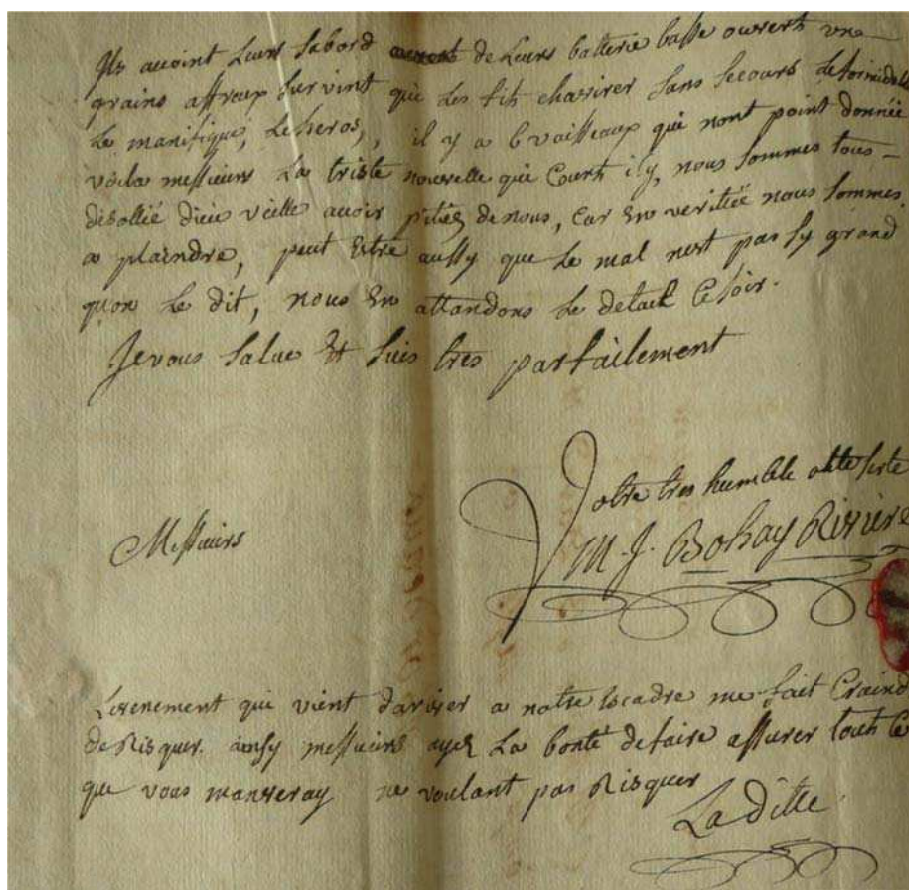 Ils avoint Leurs Sabord de Leurs batterie basse ouvert une
grains affreux Survint que Les fit chavirer Sans Secours Leformidable
Le manifique, Leheros, il y a 6 vaisseaux qui nont point donnée
voila messieurs La triste nouvelle qui Court icy, nous Sommes tous -
désollié dieu vielle avoir pitiéz de nous, Car En veritée nous Sommes
a plaindre, peut Estre aussy que Le mal nest pas Sy grand
quon Le dit, nous En attandons Le detail Cesoir.
Jevous Salue Et Suis tres parfaitement
Votre tres humble
Messieurs
M. J. Bohay Riviere
Levenement qui vient dariver a notre Escadre me fait Craind
deRisquer. ainsy messieurs ayez La bonté defaire assurer tout Ce
que vous manveray ne voulant pas Risquer
Laditte